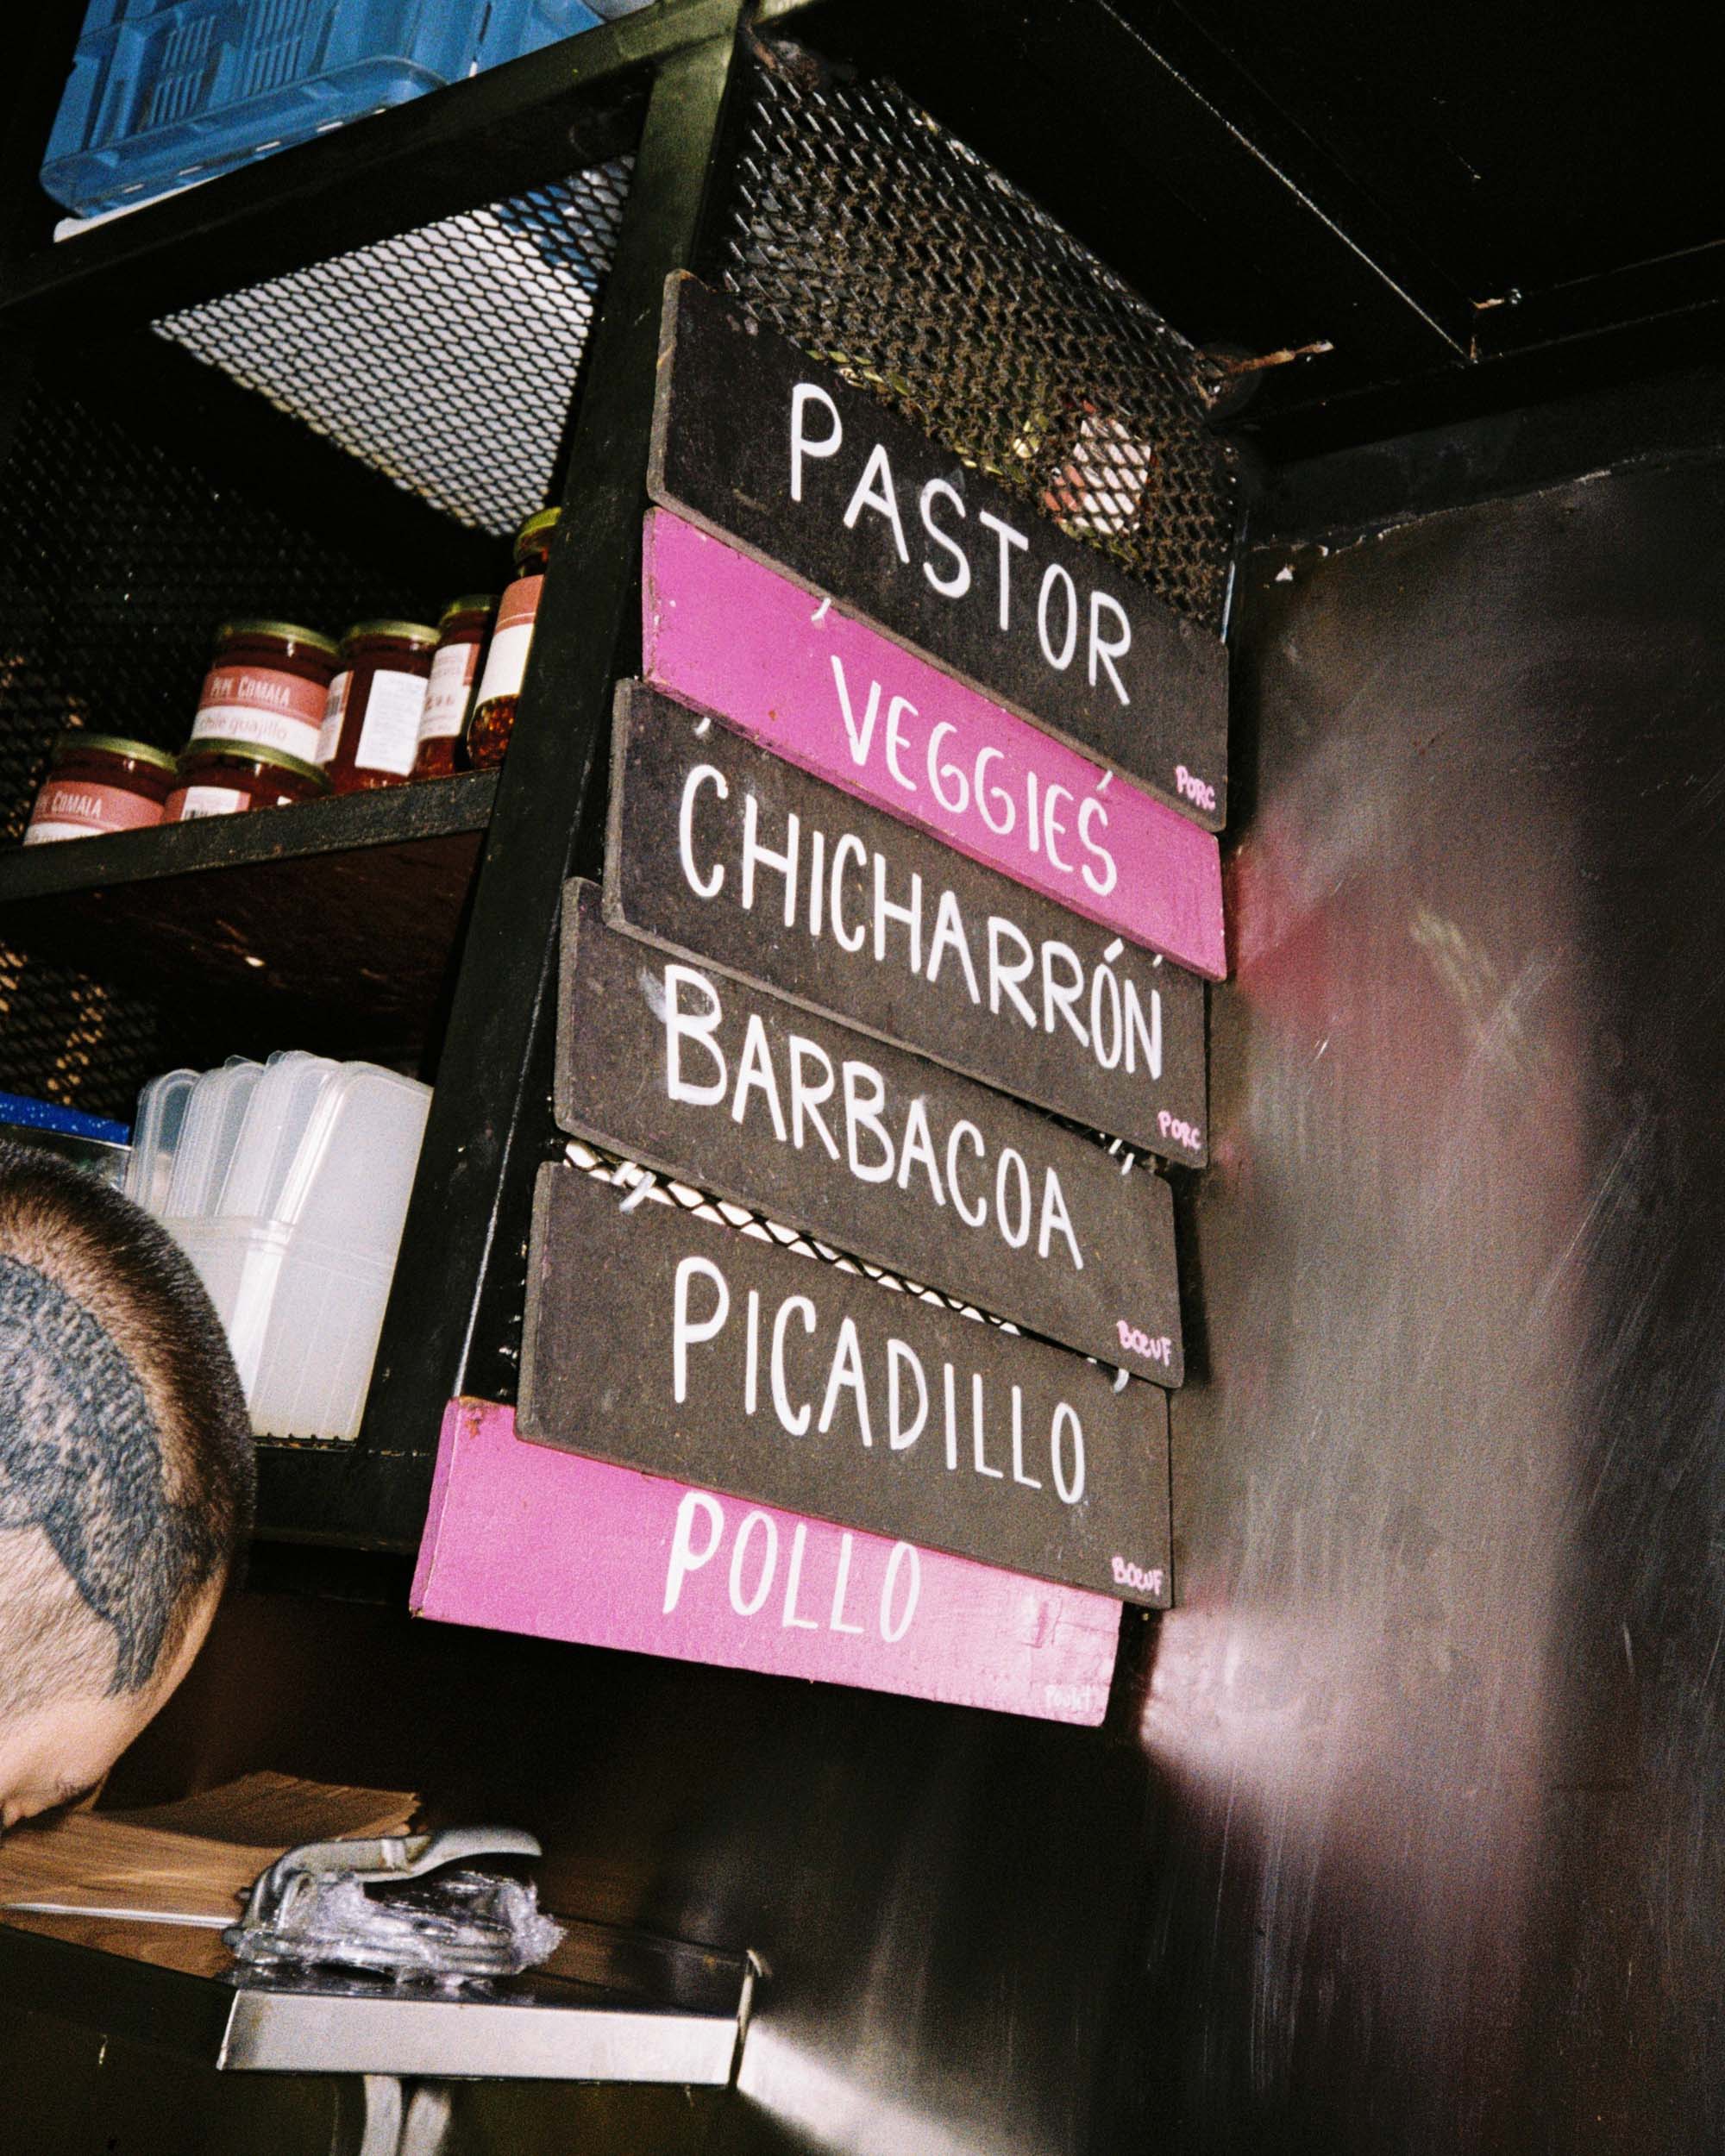 PASTOR
PORC
VEGGIES
CHICHARRÓN
PORC
BARBACOA
BŒUF
PICADILLO
BŒUF
POLLO
Poulet
PEPE COMALA
chile guajillo
COMALA